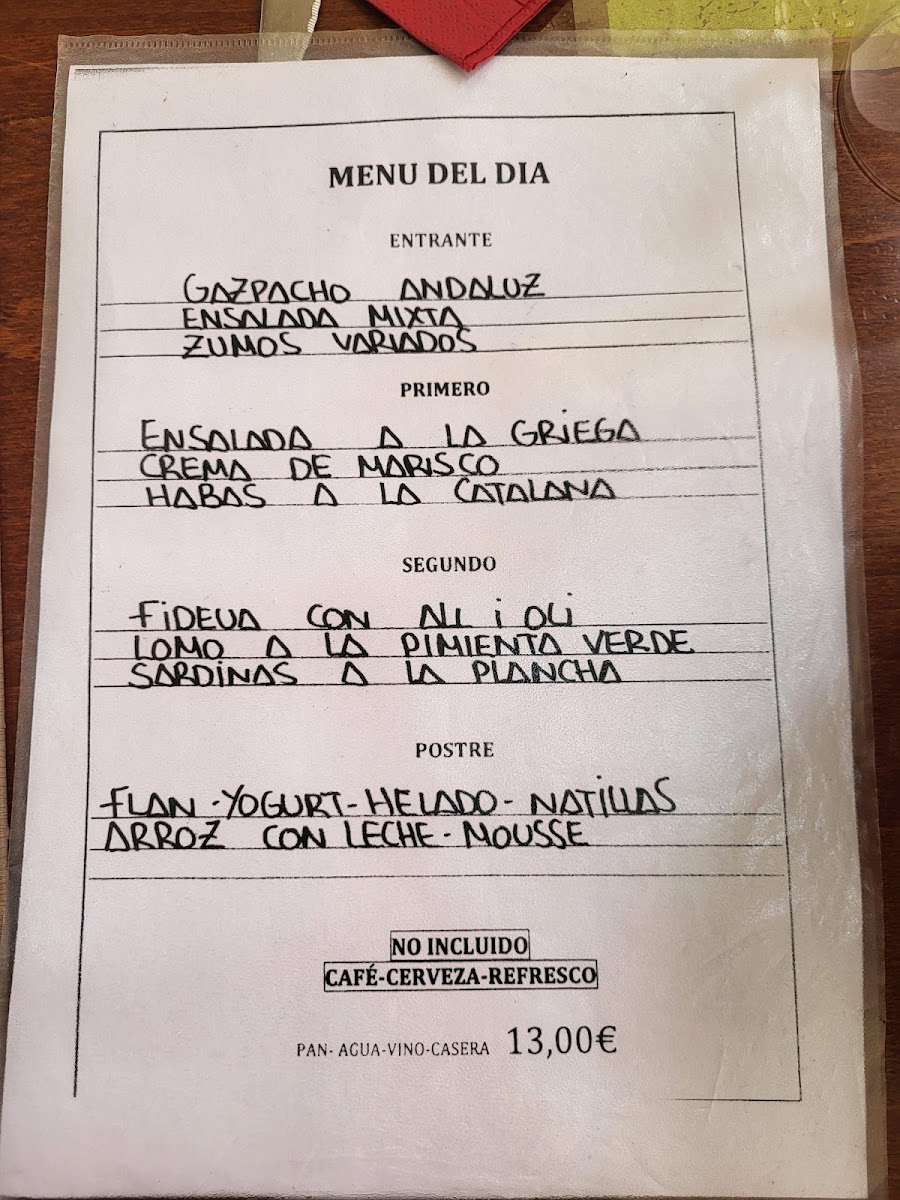 MENU DEL DIA
ENTRANTE
GAZPACHO ANDALUZ
ENSALADA MIXTA
ZUMOS VARIADOS
PRIMERO
ENSALADA A LA GRIEGA
CREMA DE MARISCO
HABAS A LA CATALANA
SEGUNDO
FIDEUA CON ALL i OLi
LOMO A LA PIMIENTA VERDE
SARDINAS A LA PLANCHA
POSTRE
FLAN - YOGURT - HELADO - NATILLAS
ARROZ CON LECHE - MOUSSE
NO INCLUIDO
CAFÉ-CERVEZA-REFRESCO
PAN- AGUA-VINO-CASERA 13,00€